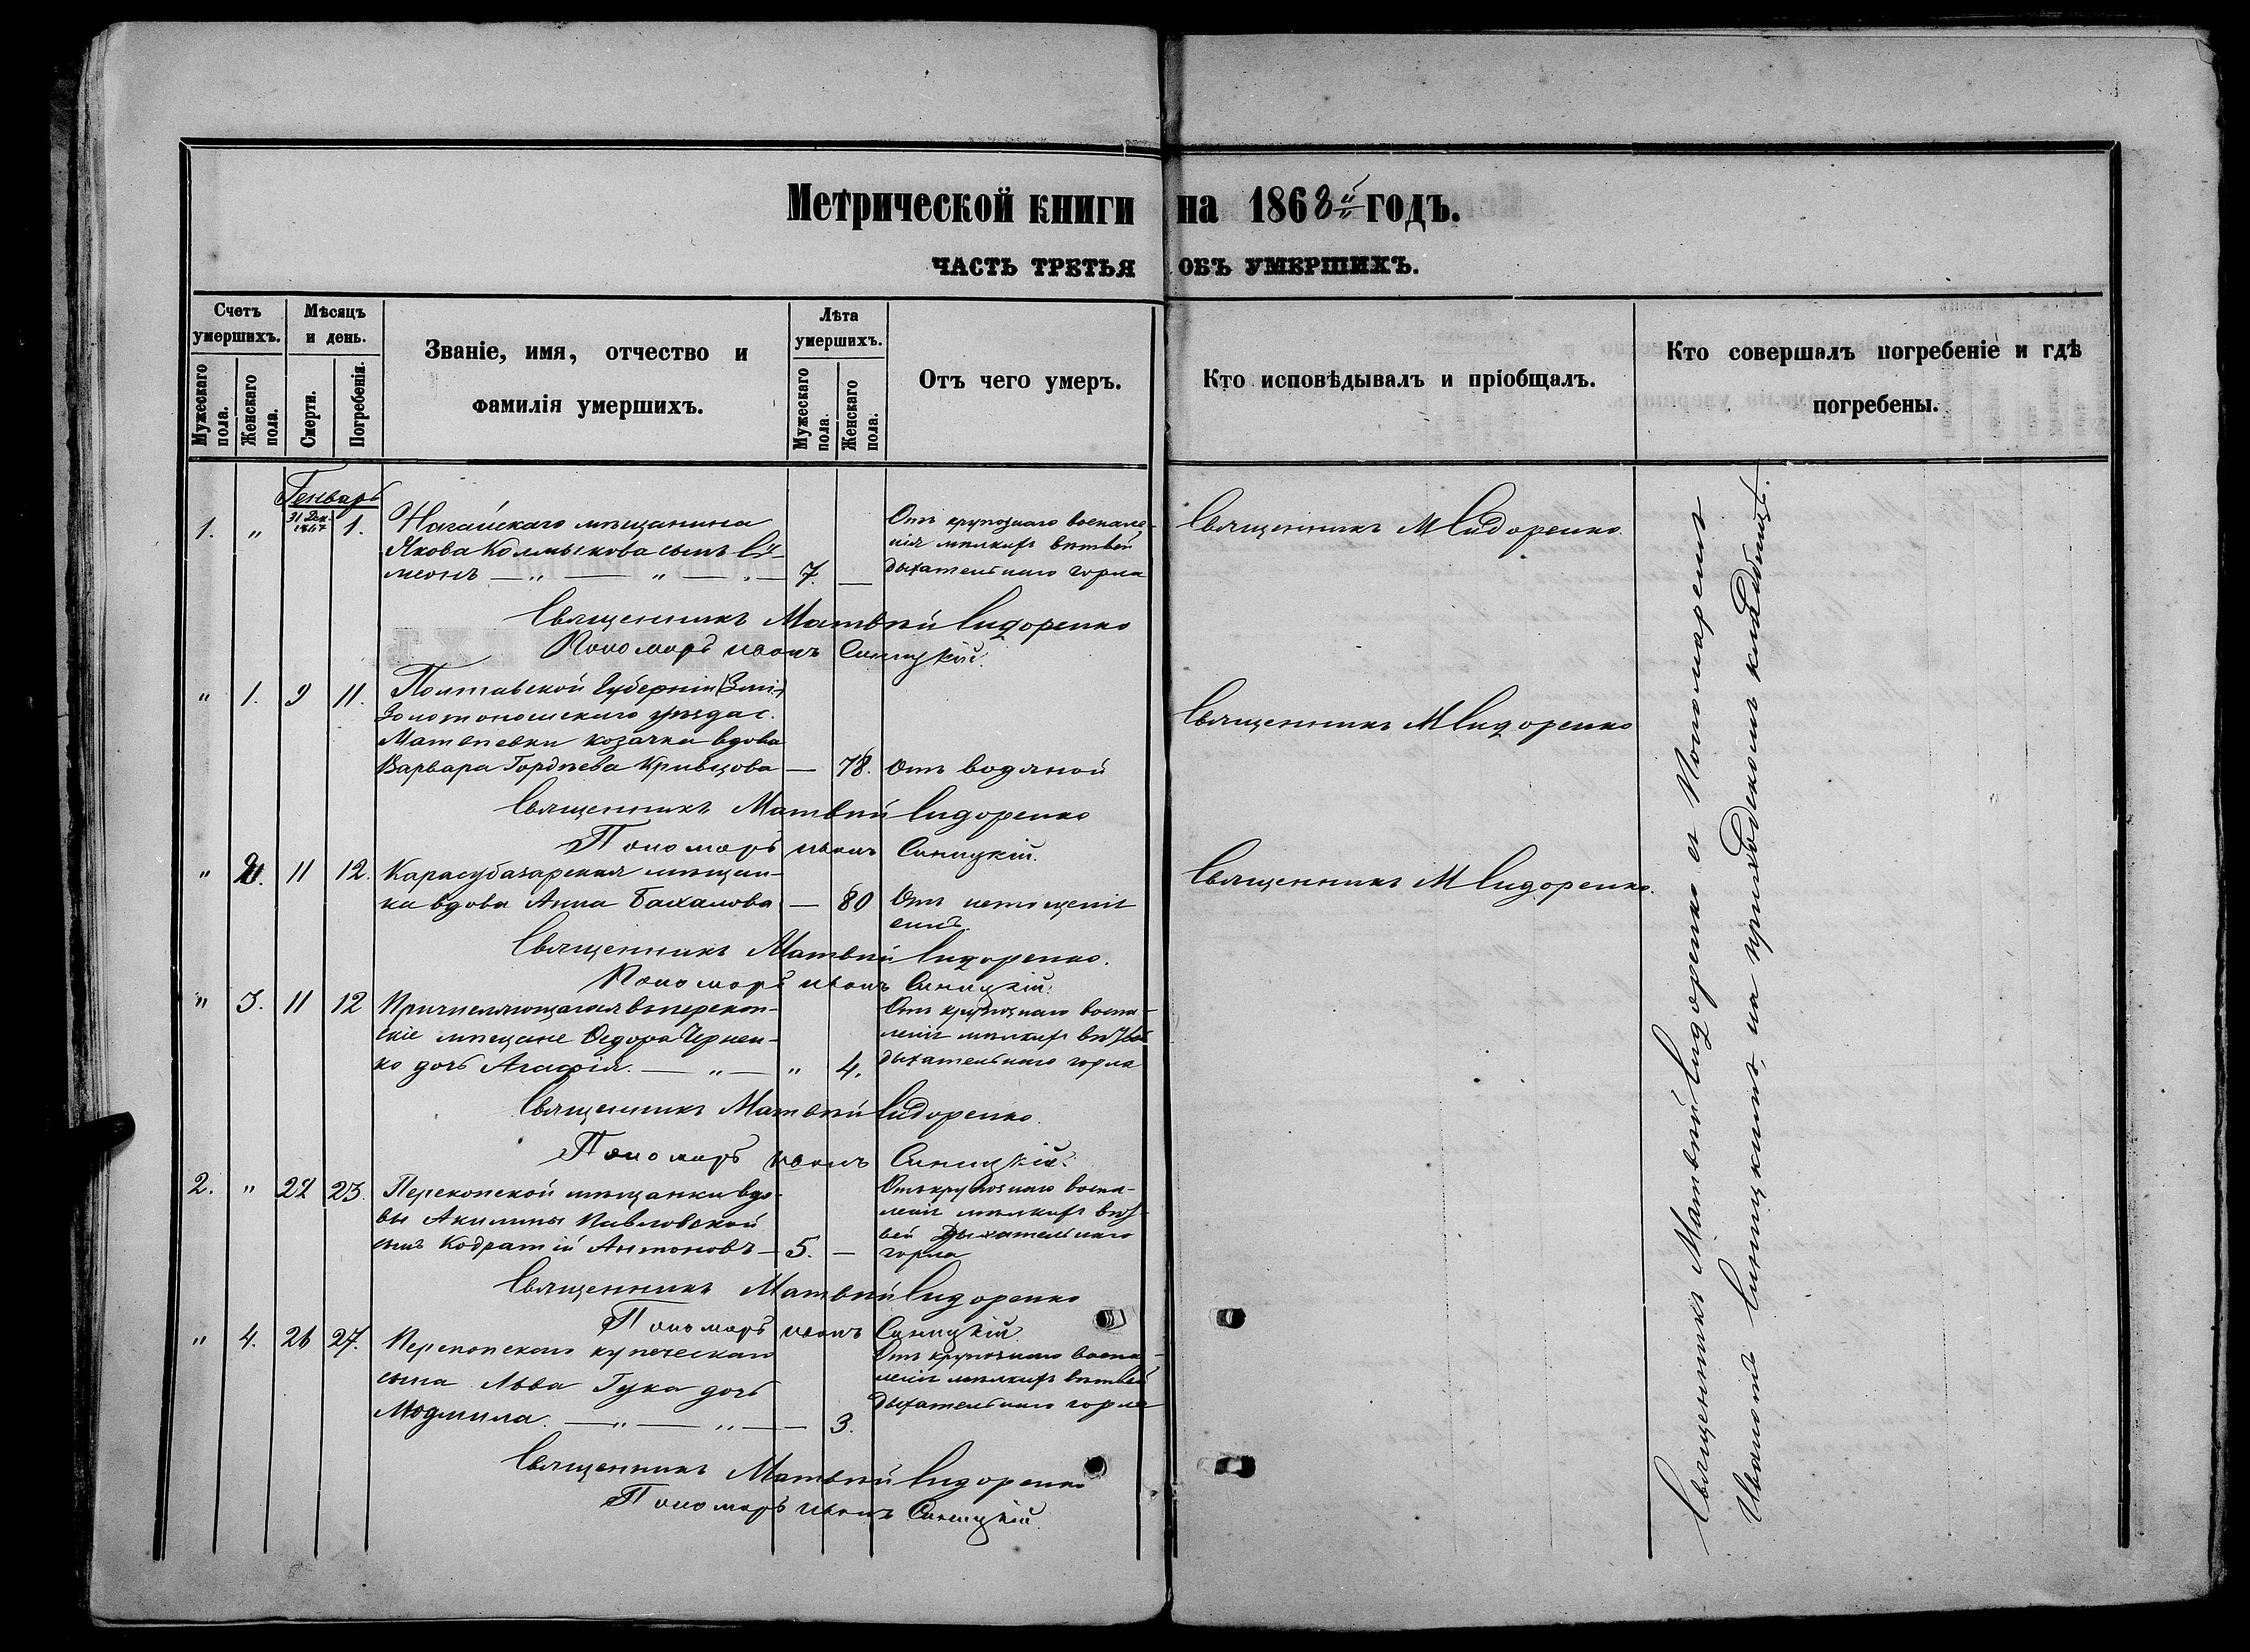 Метрической книги на 1868й годъ.
ЧАСТЬ ТРЕТЬЯ ОБЪ УМЕРШИХЪ.
Счетъ умершихъ.
Мужескаго пола.
Женскаго пола.
Мѣсяцъ и день.
Смерти.
Погребенія.
Званіе, имя, отчество и
фамилія умершихъ.
Лѣта умершихъ.
Мужескаго пола.
Женскаго пола.
Отъ чего умеръ.
Кто исповѣдывалъ и пріобщалъ.
Кто совершалъ погребеніе и гдѣ
погребены.
Генварь
1. " 31 Дек. 1867 1. Ногайскаго мѣщанина
Якова Колмыкова сынъ Си-
меонъ — " — " — " — 7. —
Отъ крупознаго воспале-
нія мѣлкихъ вѣтвей
дыхательнаго горла
Священникъ М Сидоренко.
Священникъ Матвѣй Сидоренко
Пономарь Иванъ Синицкій.
" 1. 9 11. Полтавской Губерніи
Золотоношскаго уѣзда с.
Матвѣевки козачка вдова
Варвара Гордѣева Кривцова — 78. Отъ водяной
Священникъ М Сидоренко
Священникъ Матвѣй Сидоренко
Пономарь Иванъ Синицкій.
" 2. 11 12. Карасубазарская мѣщан-
ка вдова Анна Бахалова — 80 Отъ истощенія
силъ
Священникъ М Сидоренко.
Священникъ Матвѣй Сидоренко.
Пономарь Иванъ Синицкій.
" 3. 11 12 Причисляющагося въ перекоп-
скіе мѣщане Ѳедора Чернен-
ко дочь Агафія. — " — " 4.
Отъ крупознаго воспа-
ленія мѣлкихъ вѣтвей
дыхательнаго горла
Священникъ Матвѣй Сидоренко.
Пономарь Иванъ Синицкій.
2. " 22 23. Перекопской мѣщанки вдо-
вы Акилины Павловской
сынъ Кодратій Антоновъ — 5. —
Отъ крупознаго воспа-
ленія мѣлкихъ вѣт-
вей дыхательнаго
горла
Священникъ Матвѣй Сидоренко
Пономарь Иванъ Синицкій.
" 4. 26 27. Перекопскаго купеческаго
сына Льва Гука дочь
Людмила. — " — " — 3.
Отъ крупознаго воспа-
ленія мѣлкихъ вѣтвей
дыхательнаго горла
Священникъ Матвѣй Сидоренко
Пономарь Иванъ Синицкій.
Священникъ Матвѣй Сидоренко съ Пономаремъ
Иваномъ Синицкимъ, на приходскомъ кладбищѣ.